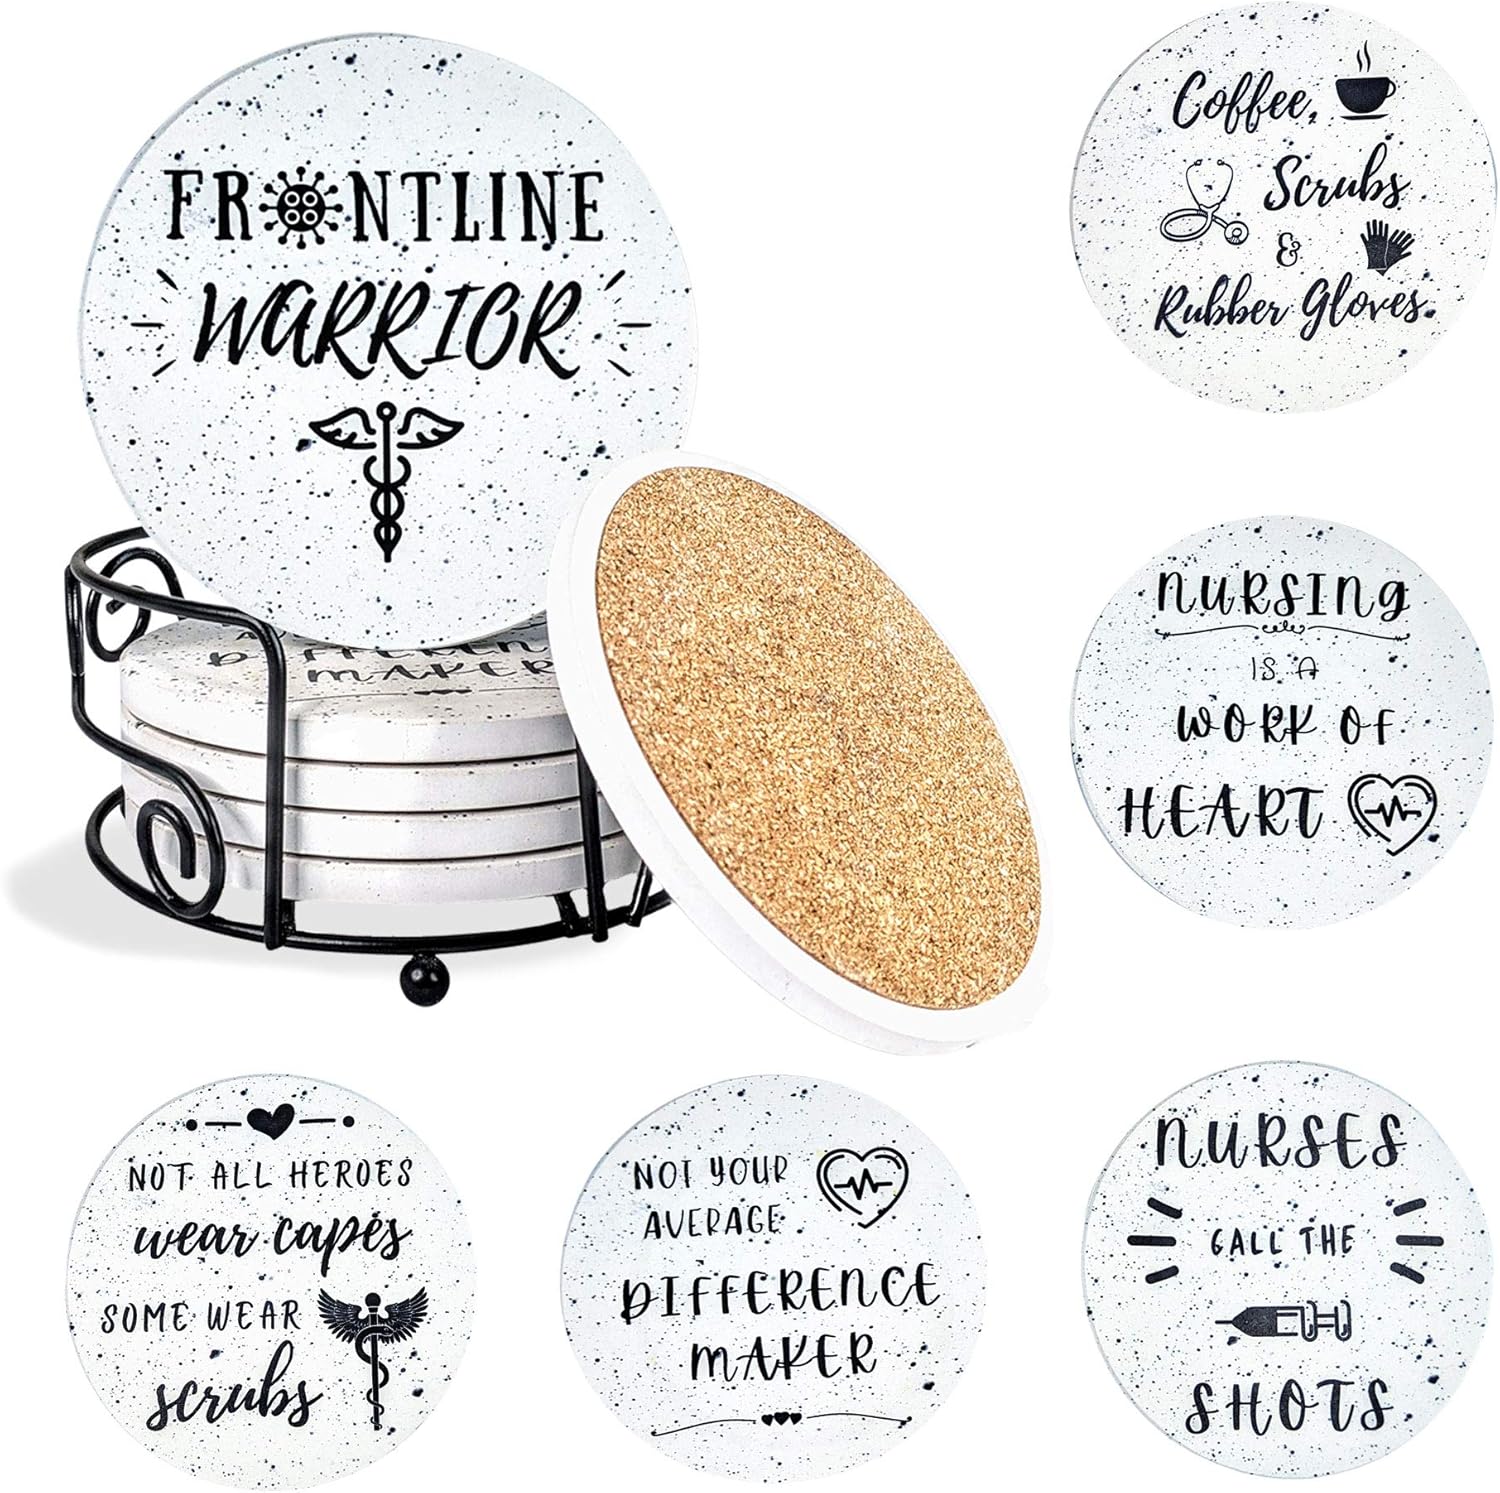 FRONTLINE
WARRIOR
DIFFERENCE
MAKER
Coffee,
Scrubs
&
Rubber Gloves
NURSING
IS A
WORK OF
HEART
NOT ALL HEROES
wear capes
SOME WEAR
scrubs
NOT YOUR
AVERAGE
DIFFERENCE
MAKER
NURSES
CALL THE
SHOTS